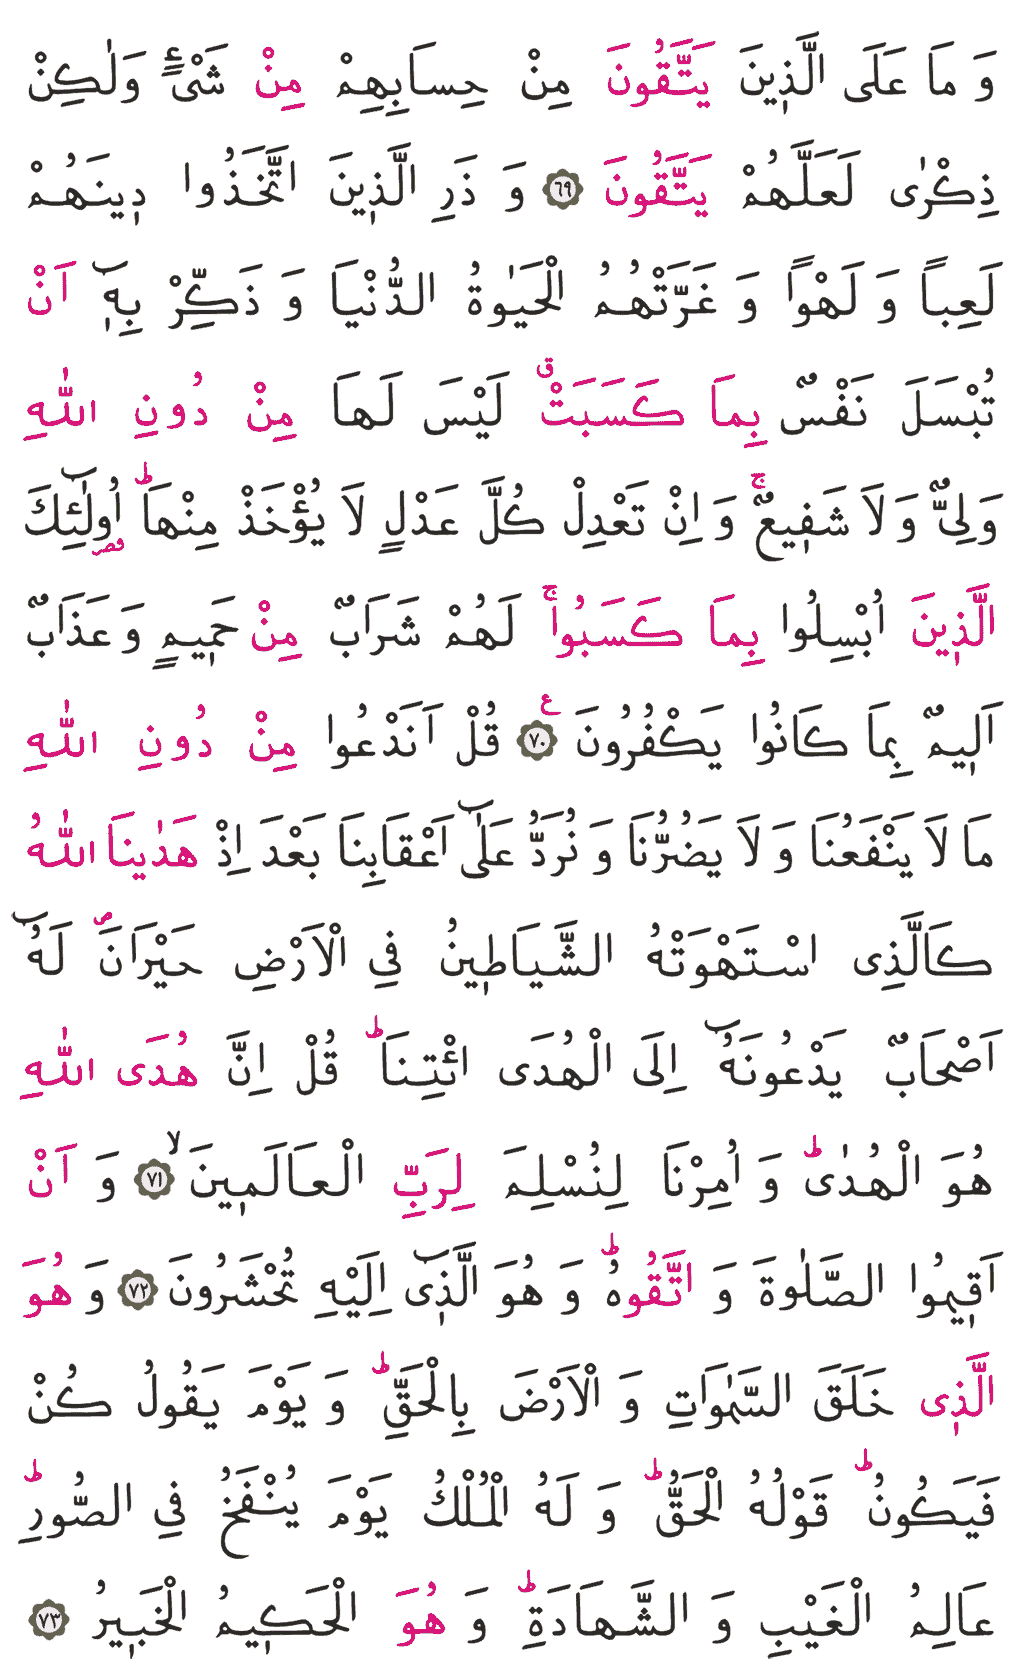 وَ مَا عَلَى الَّذٖينَ يَتَّقُونَ مِنْ حِسابِهِمْ مِنْ شَیْءٍ وَلٰكِنْ
ذِكْرٰی لَعَلَّهُمْ يَتَّقُونَ ﴿٦٩﴾ وَ ذَرِ الَّذٖينَ اتَّخَذُوا دٖينَهُمْ
لَعِباً وَ لَهْواً وَ غَرَّتْهُمُ الْحَيٰوةُ الدُّنْيَا وَ ذَكِّرْ بِهٖٓ اَنْ
تُبْسَلَ نَفْسٌ بِمَا كَسَبَتْۗ لَيْسَ لَهَا مِنْ دُونِ اللّٰهِ
وَلِیٌّ وَ لَا شَفٖيعٌۚ وَ اِنْ تَعْدِلْ كُلَّ عَدْلٍ لَا يُؤْخَذْ مِنْهَاؕ اُولٰٓئِكَ
الَّذٖينَ اُبْسِلُوا بِمَا كَسَبُواۚ لَهُمْ شَرَابٌ مِنْ حَمٖيمٍ وَ عَذَابٌ
اَلٖيمٌ بِمَا كَانُوا يَكْفُرُونَ ﴿٧٠﴾ ع قُلْ اَنَدْعُوا مِنْ دُونِ اللّٰهِ
مَا لَا يَنْفَعُنَا وَ لَا يَضُرُّنَا وَ نُرَدُّ عَلٰٓى اَعْقَابِنَا بَعْدَ اِذْ هَدٰينَا اللّٰهُ
كَالَّذِی اسْتَهْوَتْهُ الشَّيَاطٖينُ فِی الْاَرْضِ حَيْرَانَ لَهُٓ
اَصْحَابٌ يَدْعُونَهُٓ اِلَی الْهُدَی ائْتِنَاؕ قُلْ اِنَّ هُدَی اللّٰهِ
هُوَ الْهُدٰیؕ وَ اُمِرْنَا لِنُسْلِمَ لِرَبِّ الْعَالَمٖينَ ﴿٧١﴾ۙ وَ اَنْ
اَقٖيمُوا الصَّلٰوةَ وَ اتَّقُوهُؕ وَ هُوَ الَّذٖٓی اِلَيْهِ تُحْشَرُونَ ﴿٧٢﴾ وَ هُوَ
الَّذٖی خَلَقَ السَّمٰوَاتِ وَ الْاَرْضَ بِالْحَقِّؕ وَ يَوْمَ يَقُولُ كُنْ
فَيَكُونُؕ قَوْلُهُ الْحَقُّؕ وَ لَهُ الْمُلْكُ يَوْمَ يُنْفَخُ فِی الصُّورِؕ
عَالِمُ الْغَيْبِ وَ الشَّهَادَةِؕ وَ هُوَ الْحَكٖيمُ الْخَبٖيرُ ﴿٧٣﴾